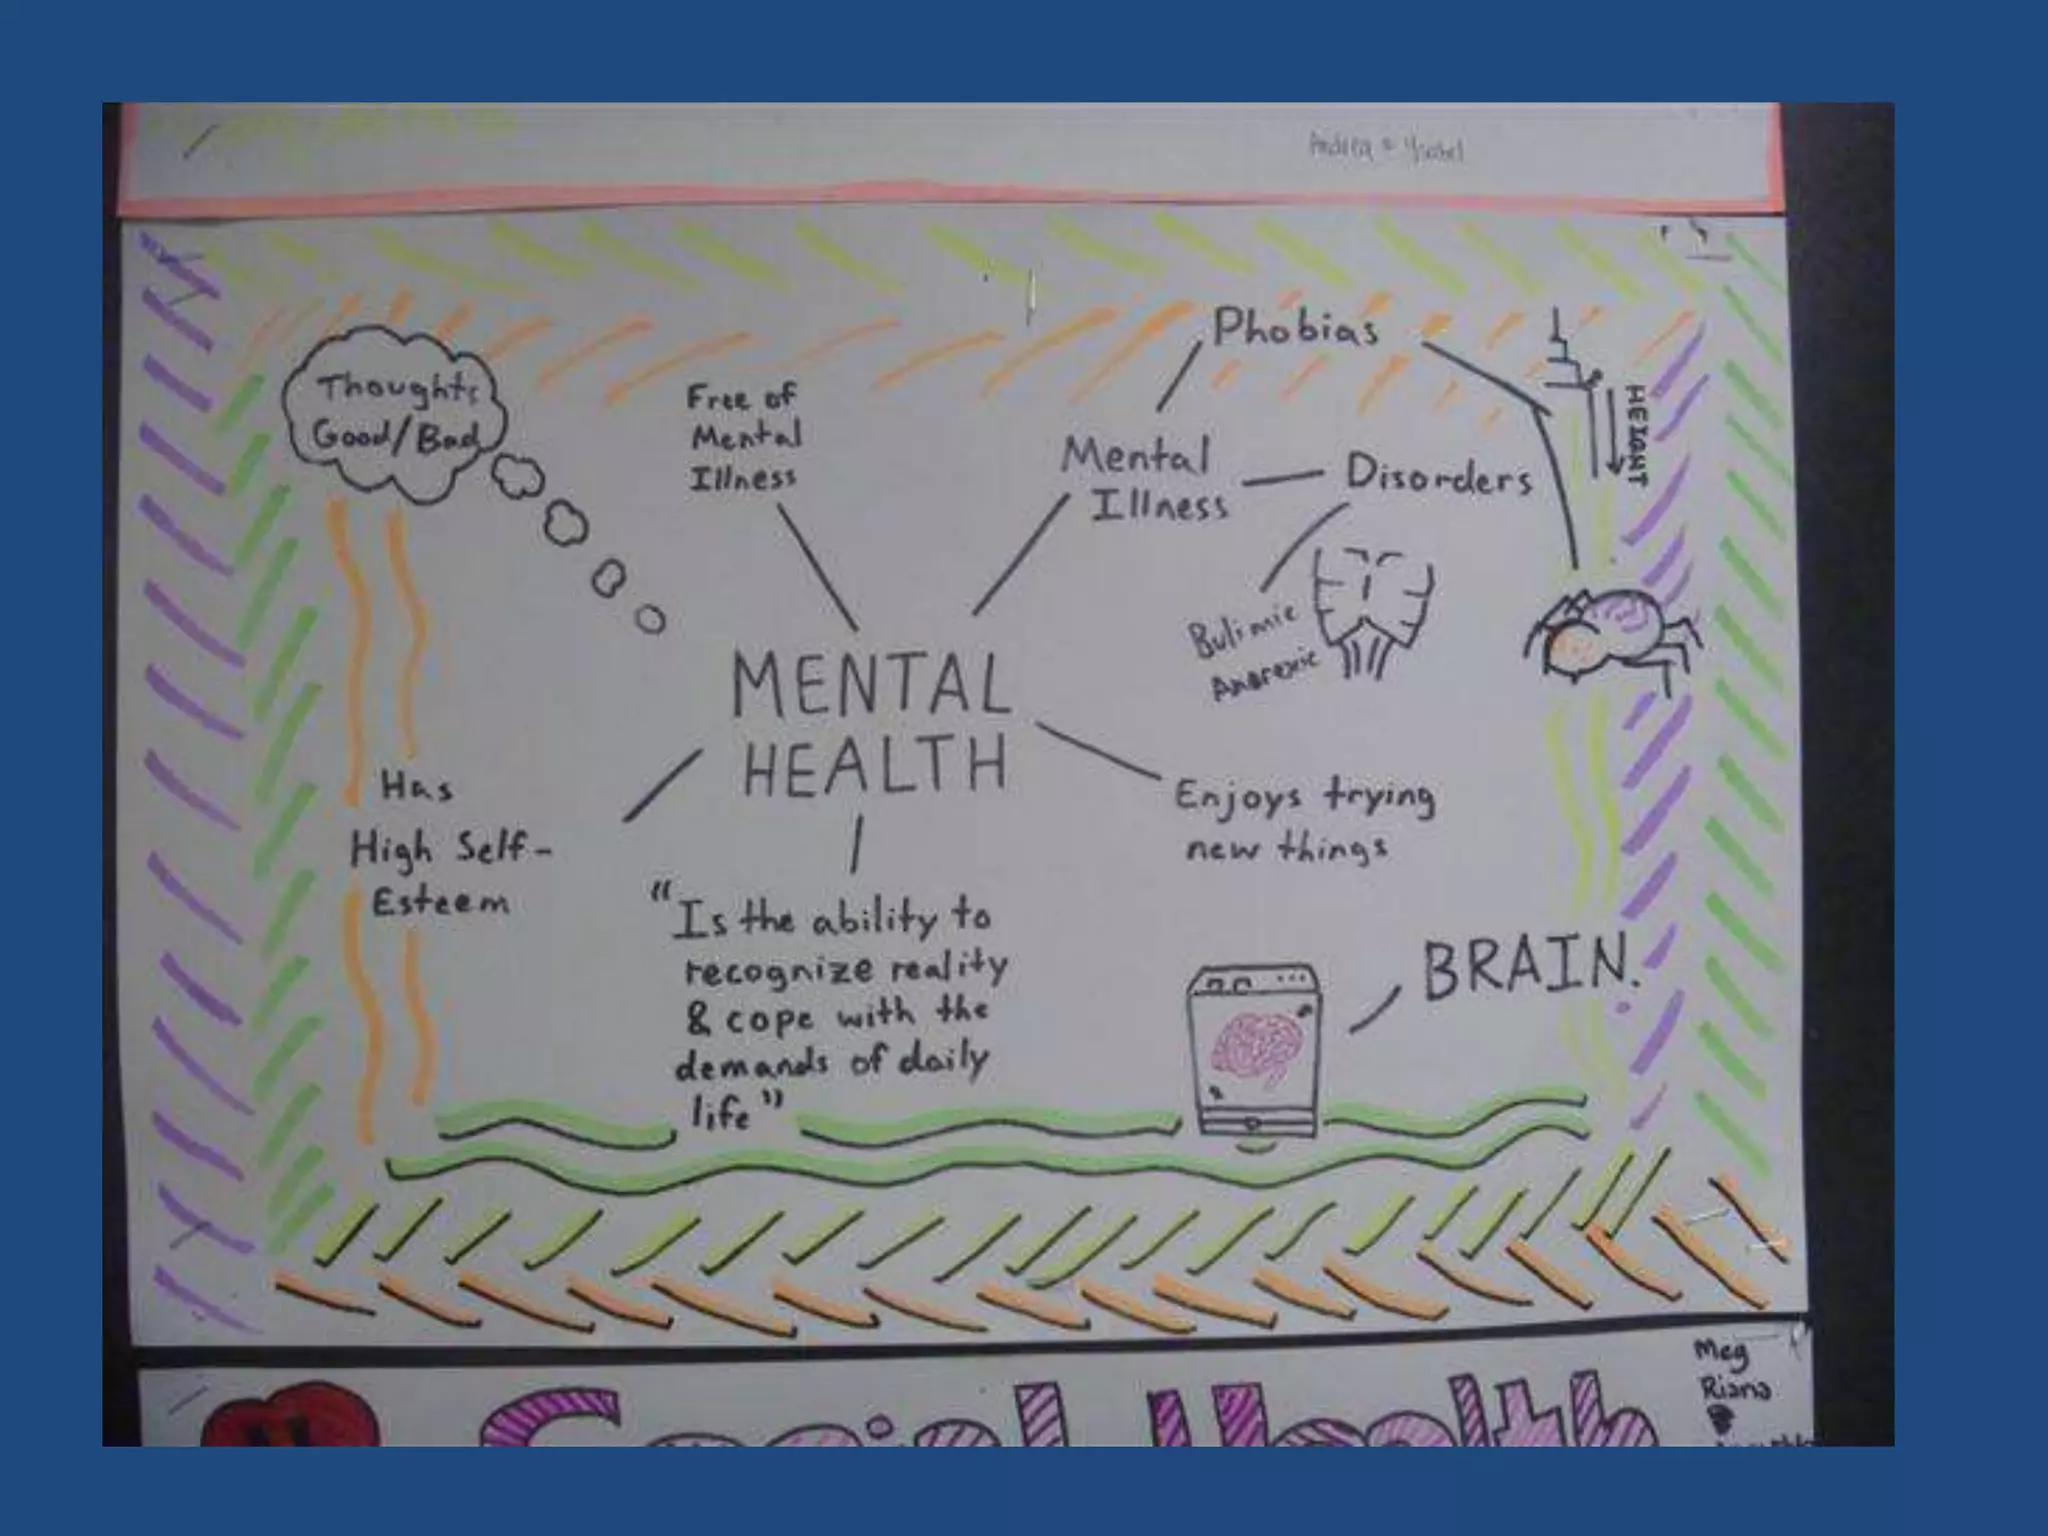 Andrea & Ysabel
Phobias
HEIGHT
Thoughts
Good/Bad
Free of
Mental
Illness
Mental
Illness
Disorders
Bulimic
Anorexic
MENTAL
HEALTH
Has
High Self-
Esteem
Enjoys trying
new things
"Is the ability to
recognize reality
& cope with the
demands of daily
life"
BRAIN.
Meg
Riana
Social Health